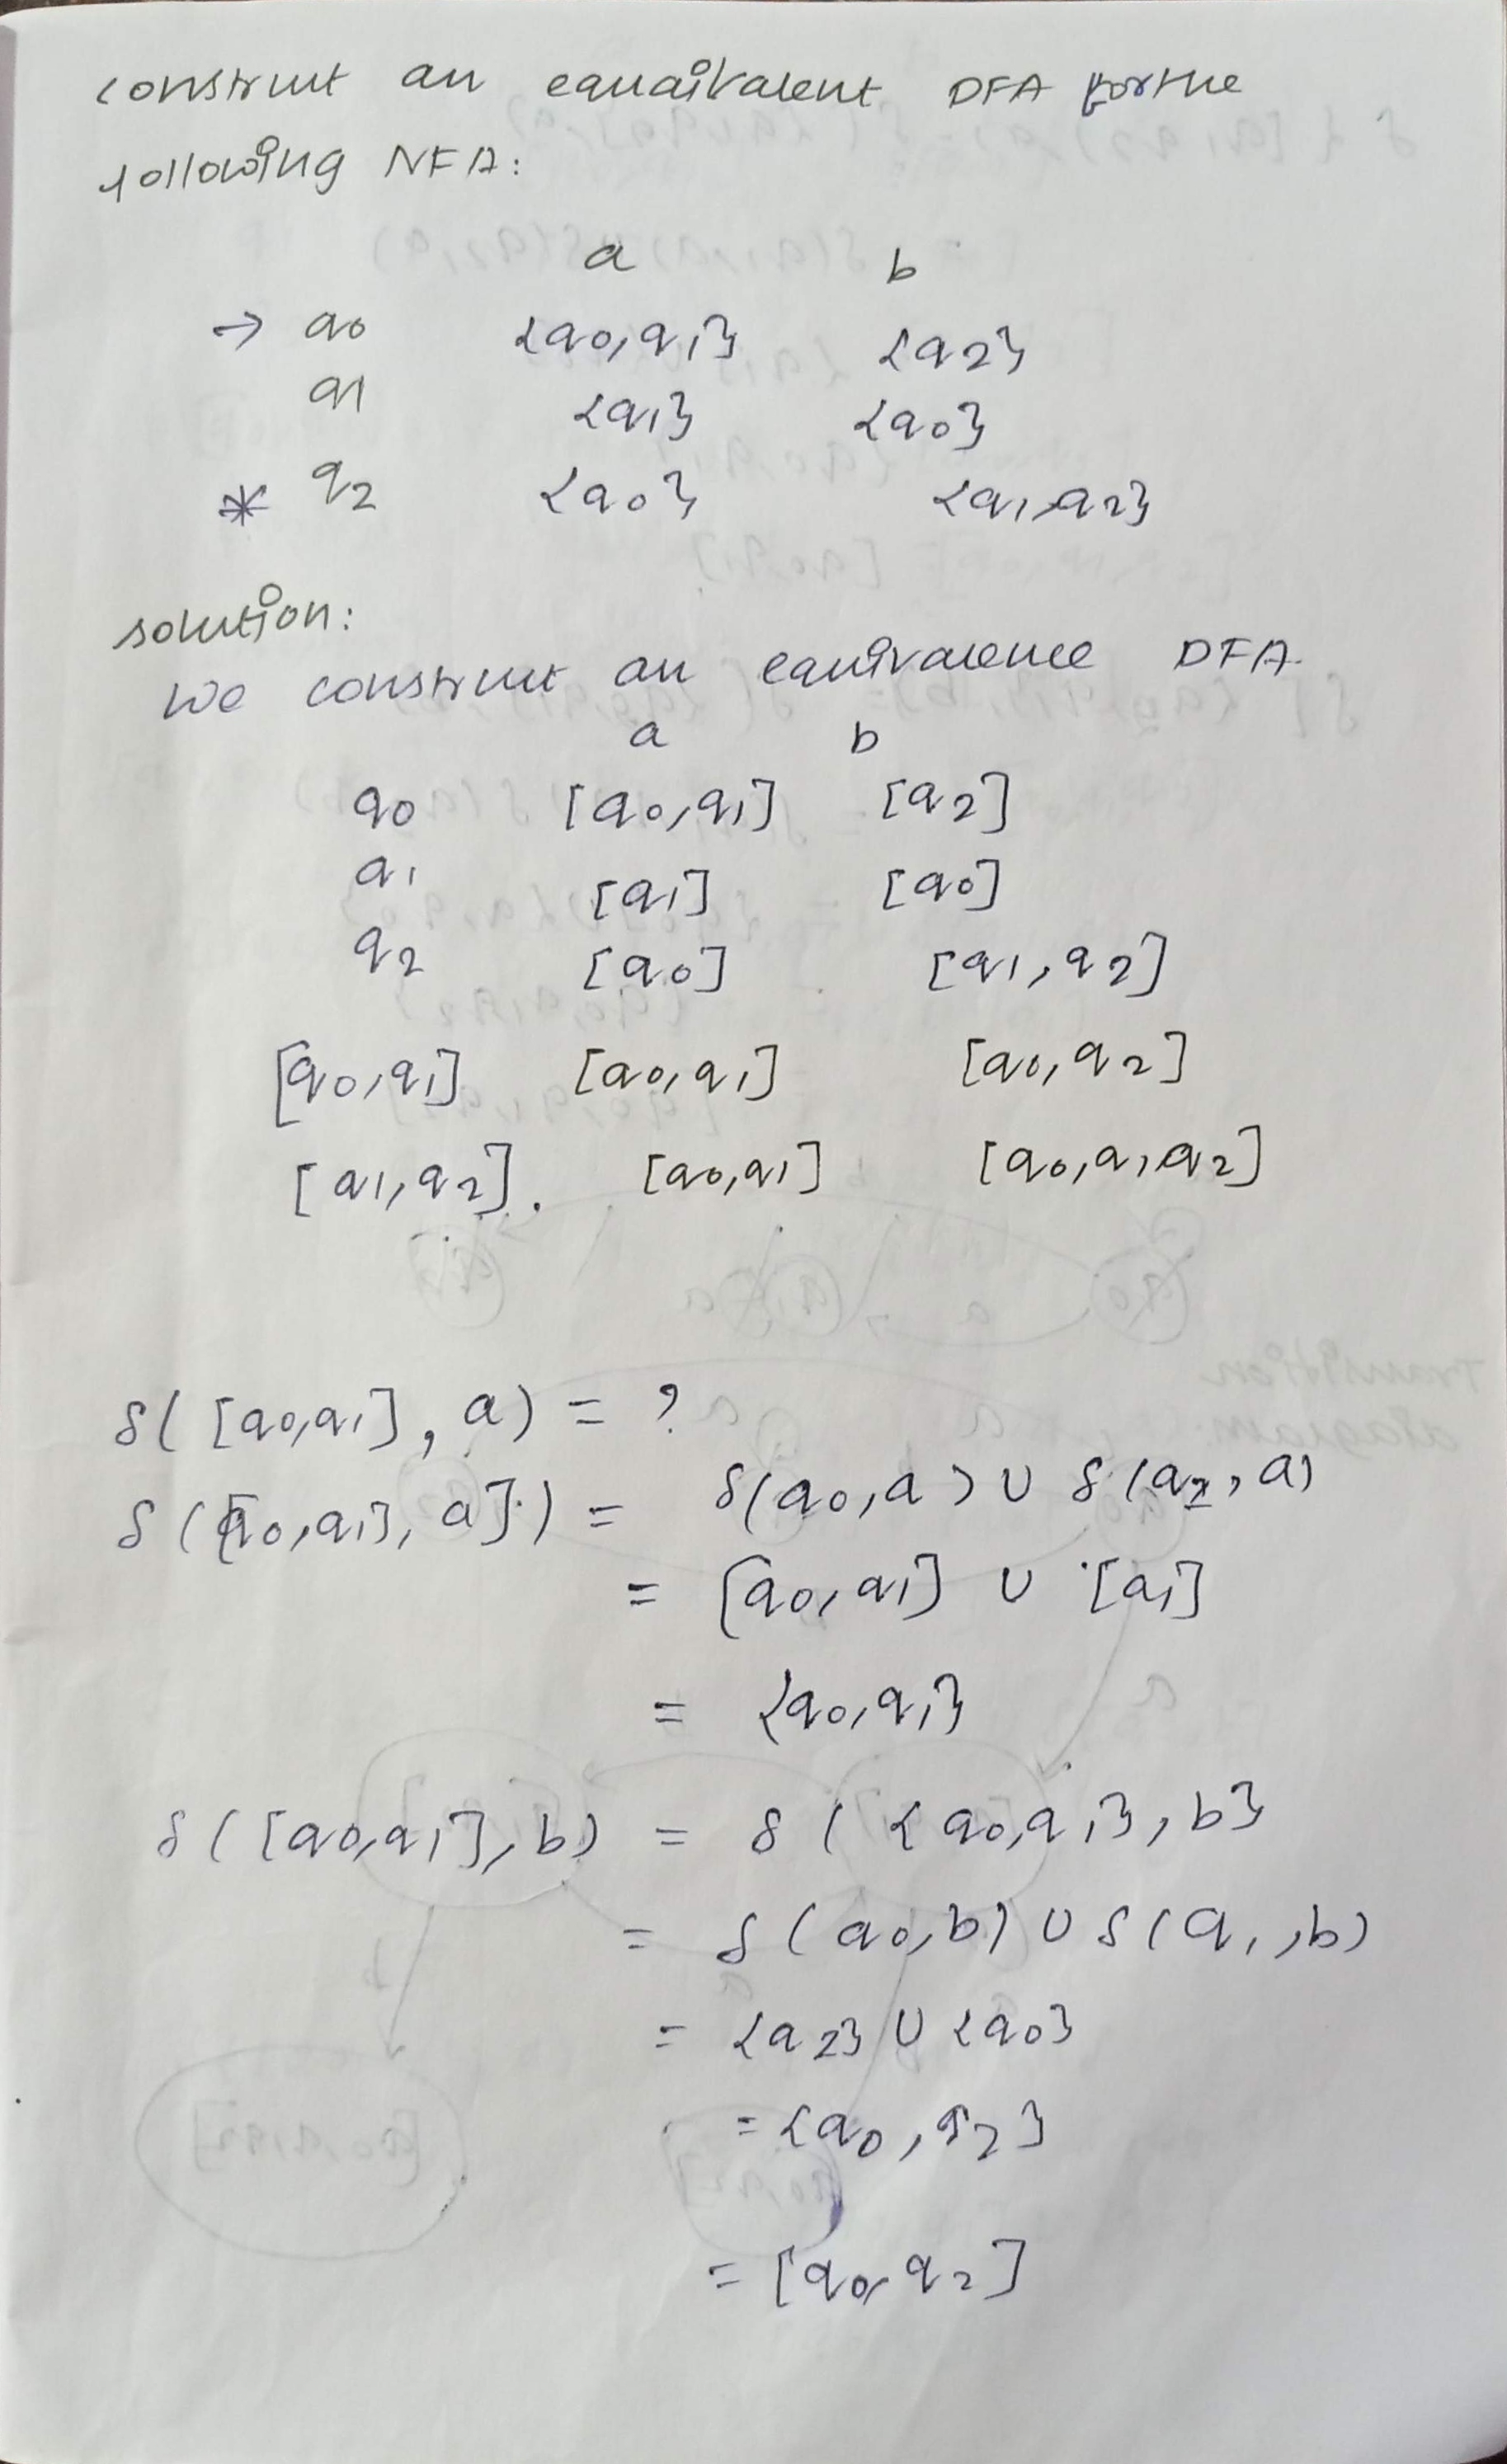 construct an equaivalent DFA for the
following NFA:
a b
→ q0 {q0,q1} {q2}
q1 {q1} {q0}
* q2 {q0} {q1,q2}
solution:
We construct an equivalence DFA
a b
q0 [q0,q1] [q2]
q1 [q1] [q0]
q2 [q0] [q1,q2]
[q0,q1] [q0,q1] [q0,q2]
[q1,q2]. [q0,q1] [q0,q1,q2]
δ([q0,q1], a) = ?
δ([q0,q1}, a}) = δ(q0,a) ∪ δ(q2,a)
= [q0,q1] ∪ [q1]
= {q0,q1}
δ([q0,q1],b) = δ({q0,q1},b}
= δ(q0,b) ∪ δ(q1,b)
= {q2} ∪ {q0}
= {q0,q2}
= [q0,q2]